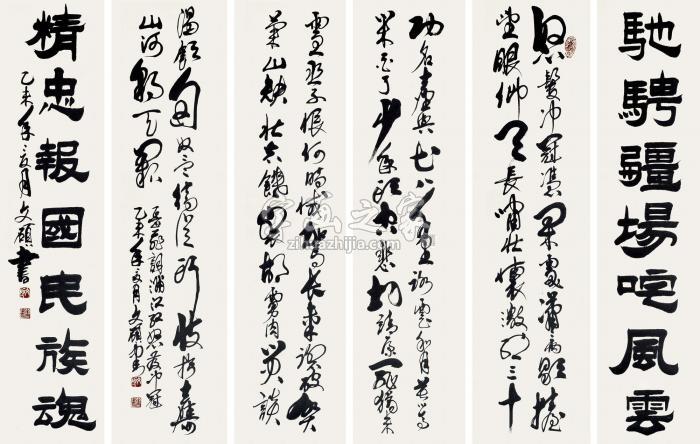 馳騁疆場吒風雲
怒髮沖冠憑闌處瀟瀟雨歇抬
望眼仰天長嘯壯懷激烈三十
功名塵與土八千里路雲和月莫等
閒白了少年頭空悲切靖康恥猶未
雪臣子恨何時滅駕長車踏破賀
蘭山缺壯志饑餐胡虜肉笑談
渴飲匈奴血待從頭收拾舊
山河朝天闕
岳飛詞滿江紅怒髮沖冠
乙未年月文碩書
精忠報國民族魂
乙未年月文碩書
字画之家
zihuazhijia.com